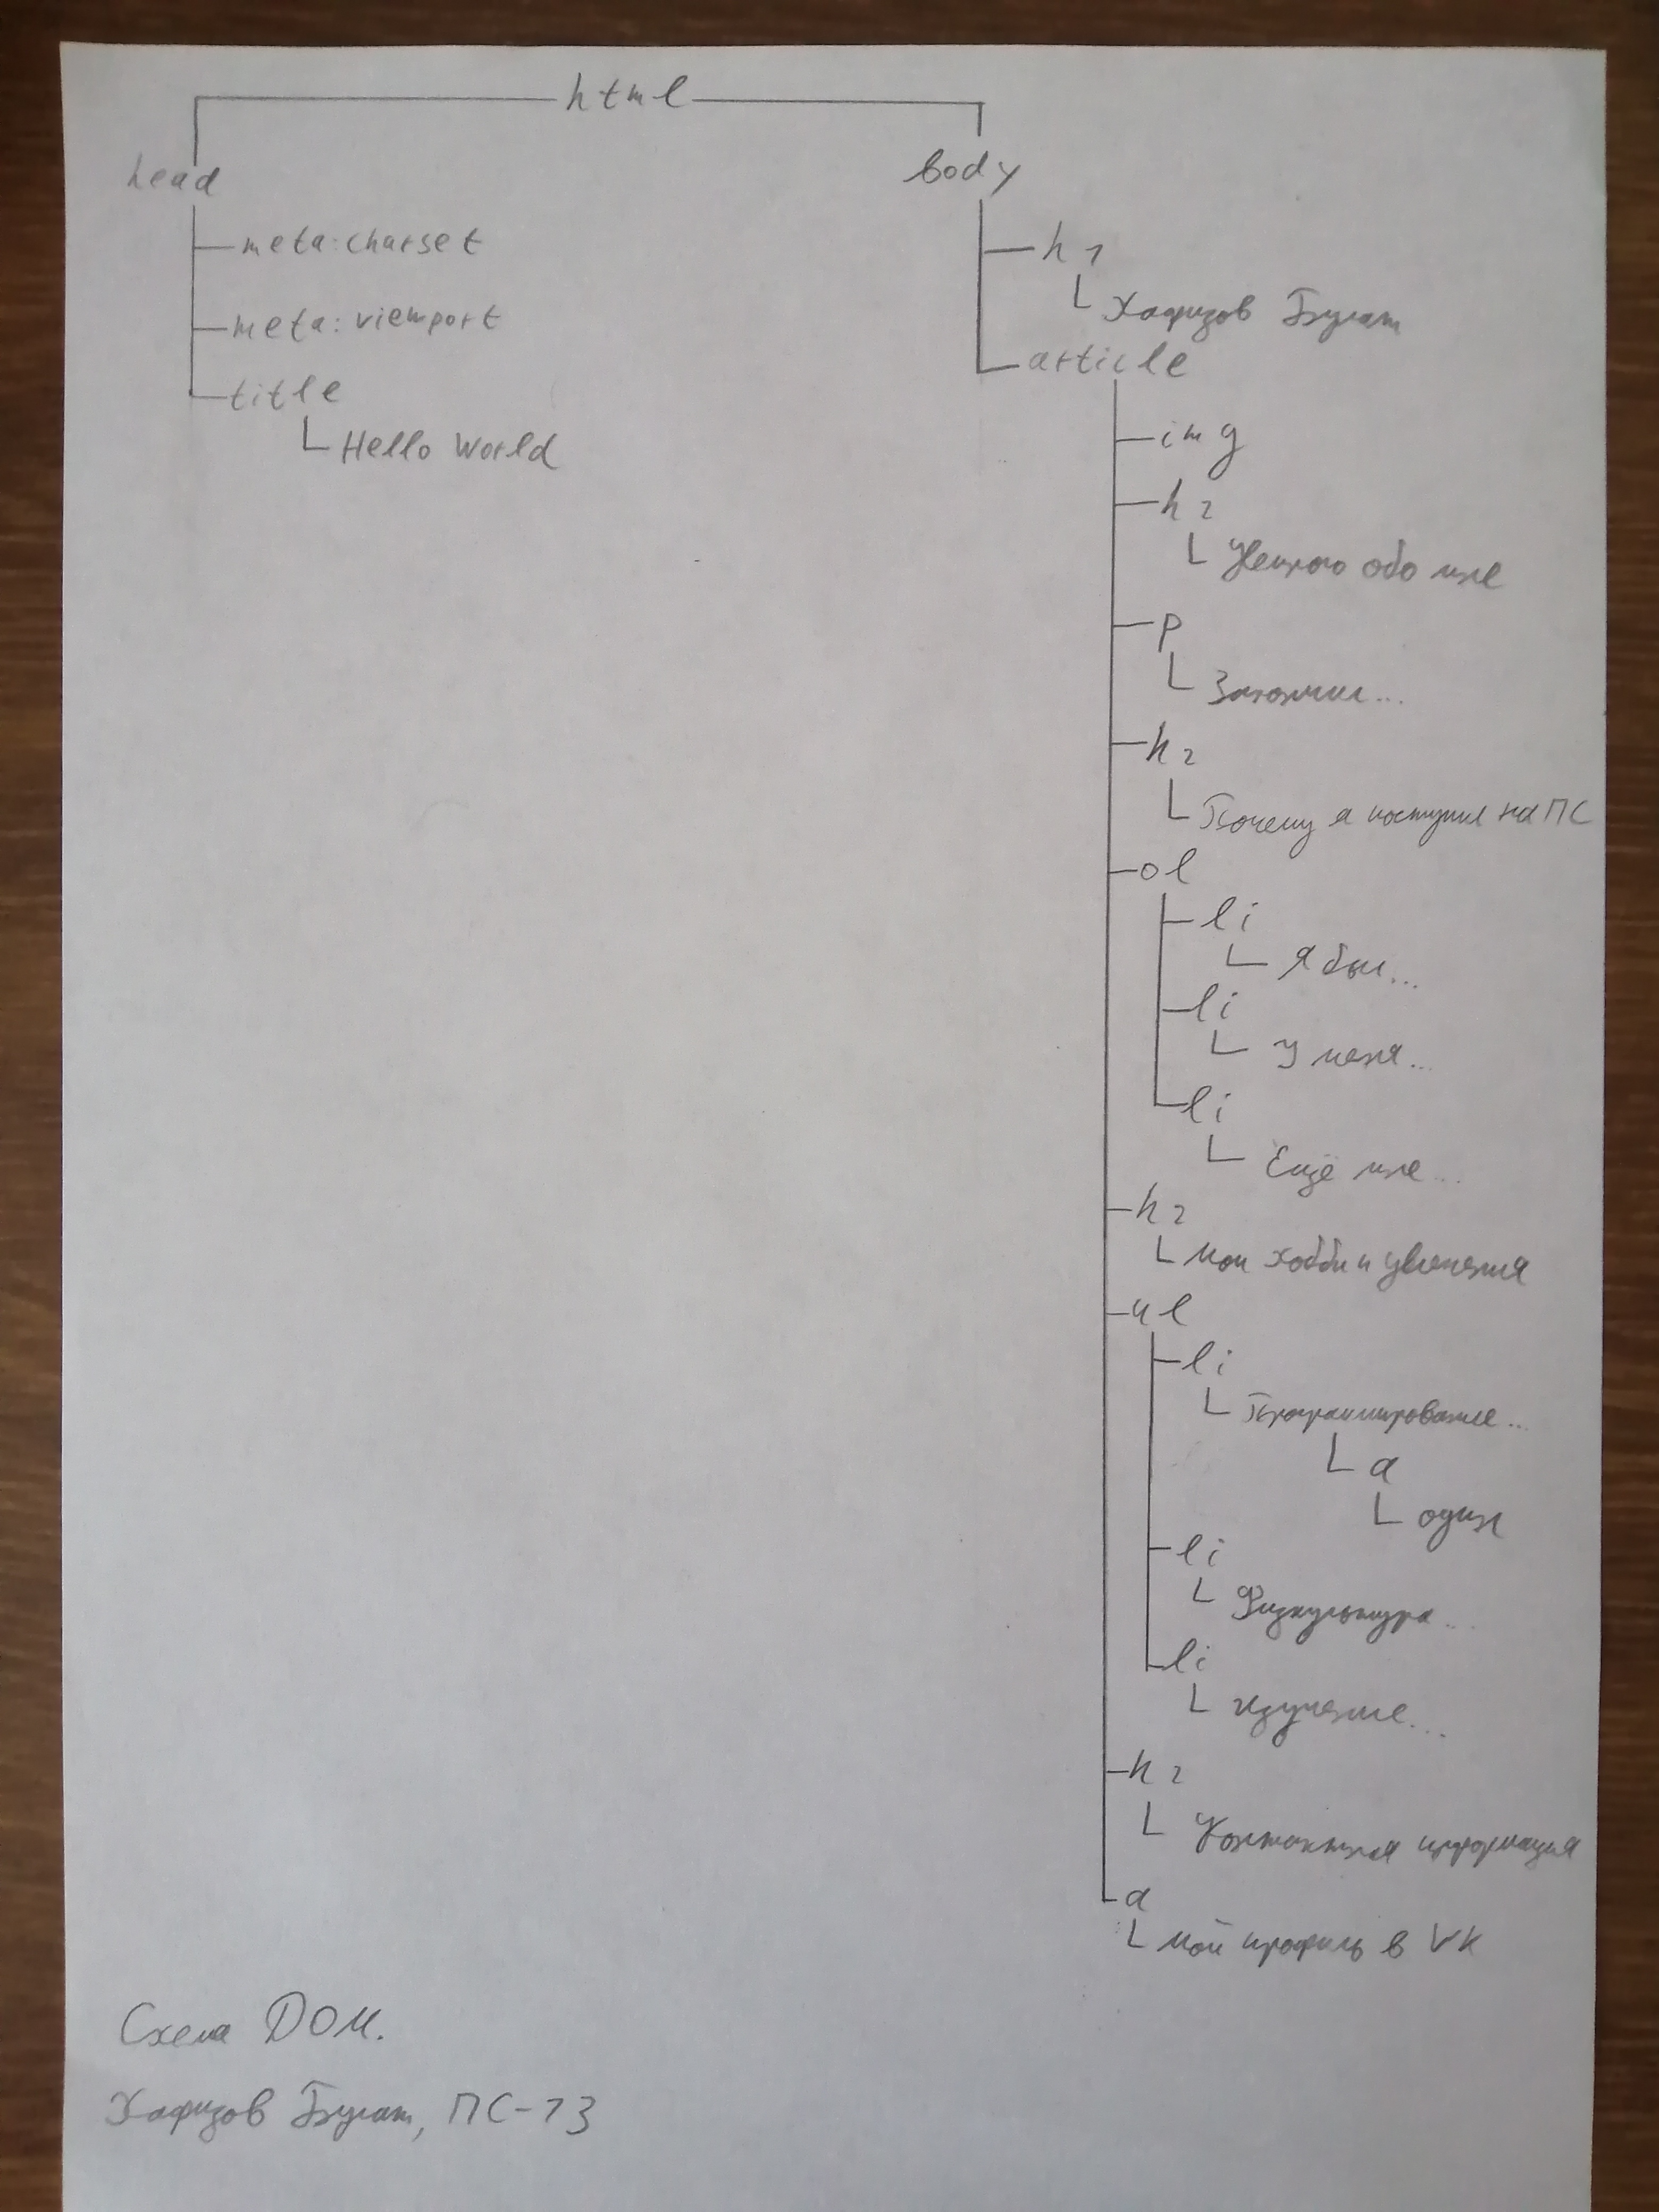 html
head
meta:charset
meta:viewport
title
Hello World
body
h1
Хафизов Булат
article
img
h2
Немного обо мне
p
Закончил...
h2
Почему я поступил на ПС
ol
li
Я был...
li
У меня...
li
Ещё мне...
h2
Мои хобби и увлечения
ul
li
Программирование...
a
один
li
Физкультура...
li
Изучение...
h2
Контактная информация
a
Мой профиль в VK
Схема ДОМ.
Хафизов Булат, ПС-13